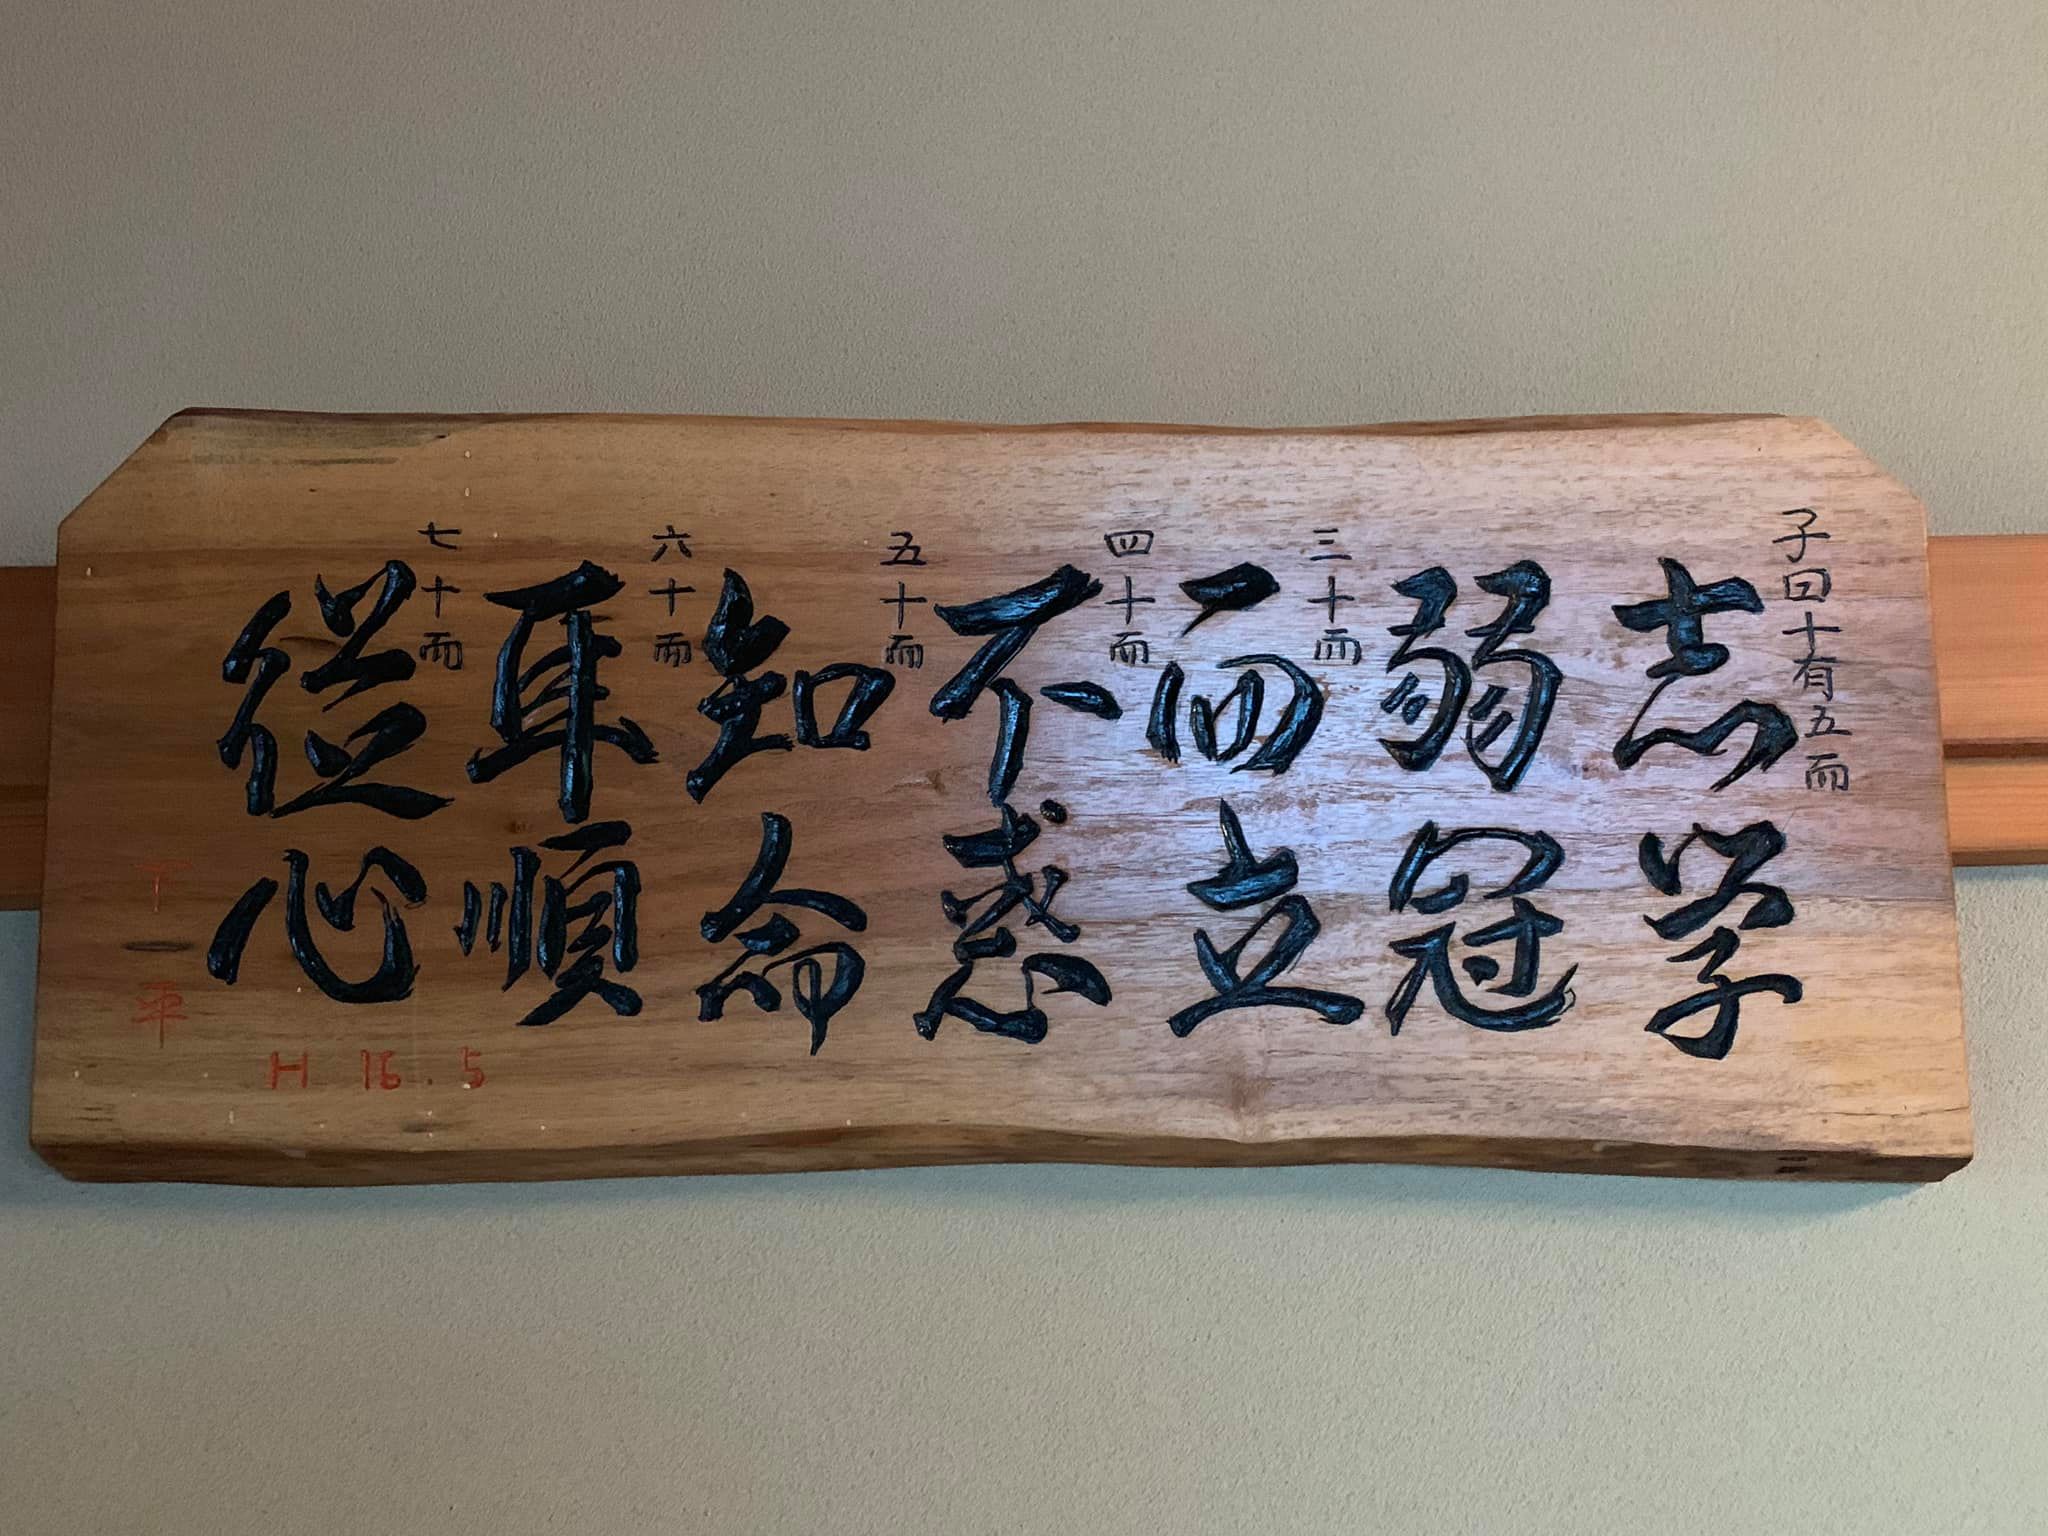 子曰十有五而
志学
弱冠
三十而
而立
四十而
不惑
五十而
知命
六十而
耳順
七十而
従心
一平
H 16.5